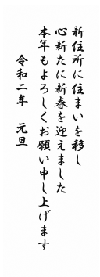 新住所に住まいを移し
心新たに新春を迎えました
本年もよろしくお願い申し上げます
令和二年　元旦